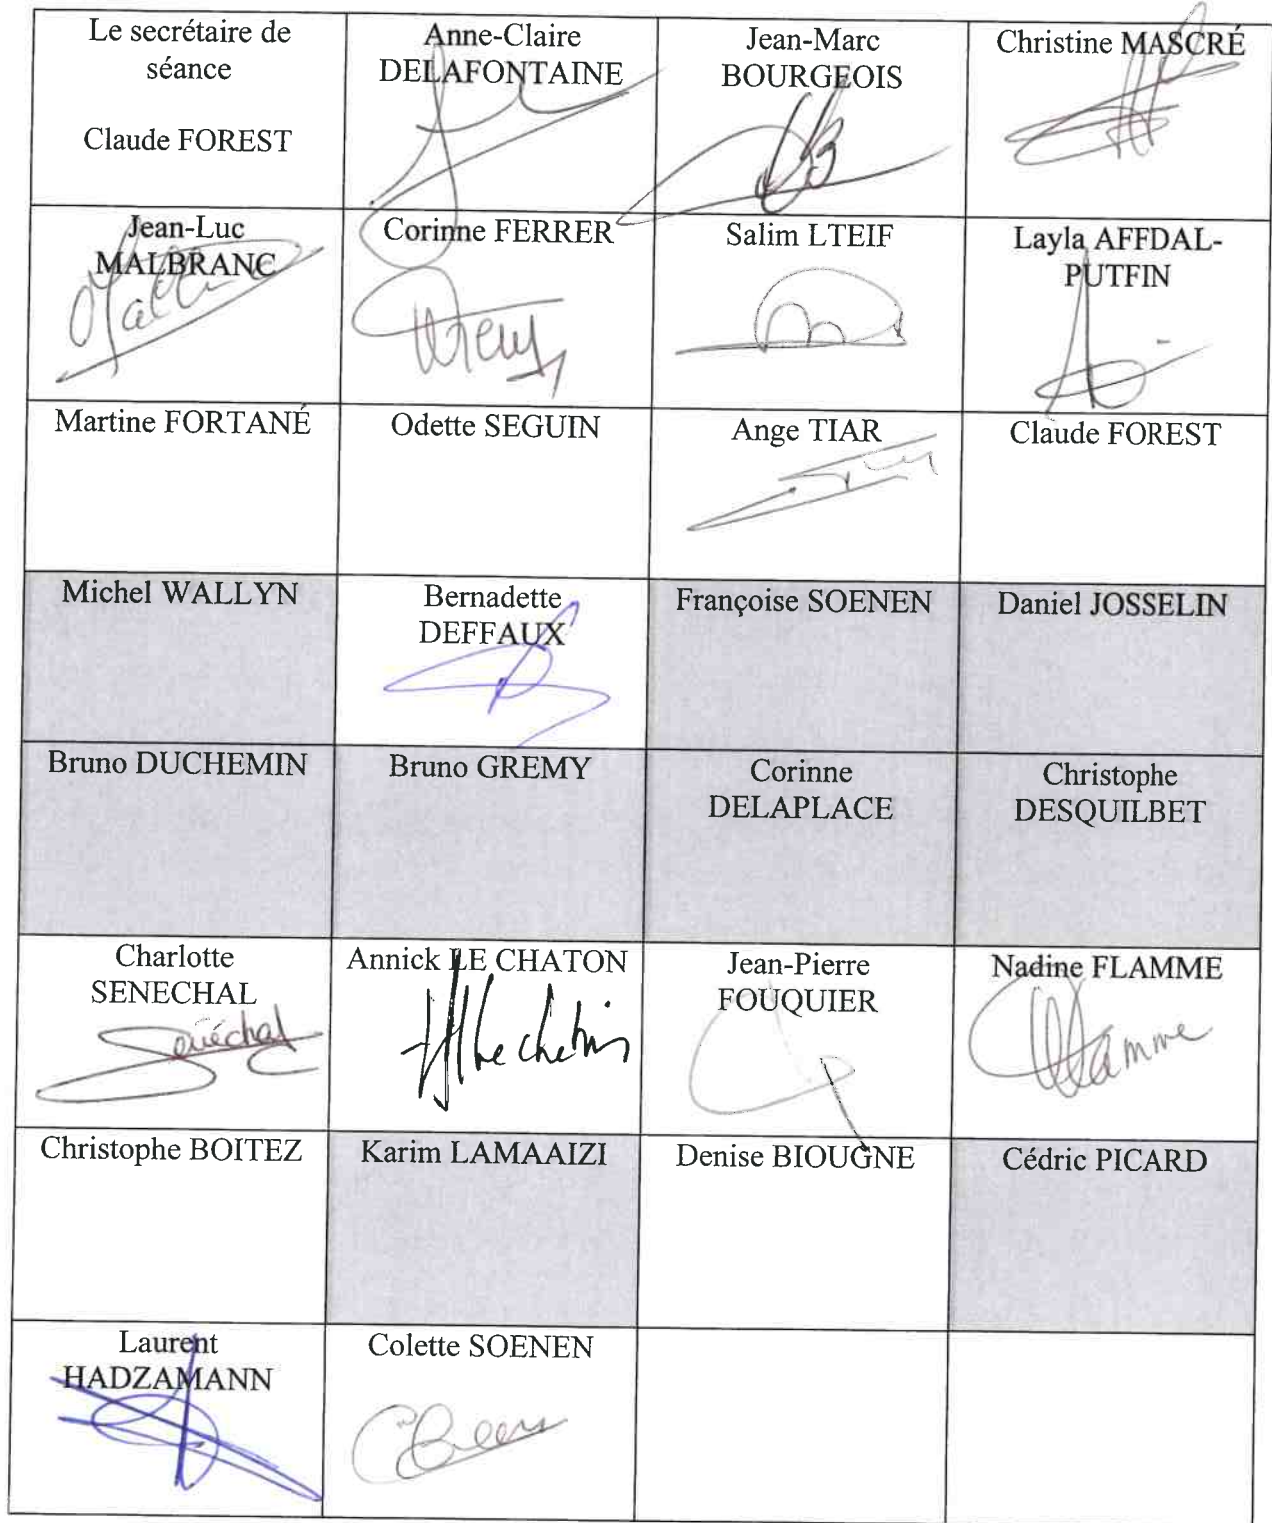 Le secrétaire de
séance
Claude FOREST
Anne-Claire
DELAFONTAINE
Jean-Marc
BOURGEOIS
Christine MASCRÉ
Jean-Luc
MALBRANC
Corinne FERRER
Salim LTEIF
Layla AFFDAL-
PUTFIN
Martine FORTANÉ
Odette SEGUIN
Ange TIAR
Claude FOREST
Michel WALLYN
Bernadette
DEFFAUX
Françoise SOENEN
Daniel JOSSELIN
Bruno DUCHEMIN
Bruno GREMY
Corinne
DELAPLACE
Christophe
DESQUILBET
Charlotte
SENECHAL
Sénéchal
Annick LE CHATON
Jean-Pierre
FOUQUIER
Nadine FLAMME
Christophe BOITEZ
Karim LAMAAIZI
Denise BIOUGNE
Cédric PICARD
Laurent
HADZAMANN
Colette SOENEN